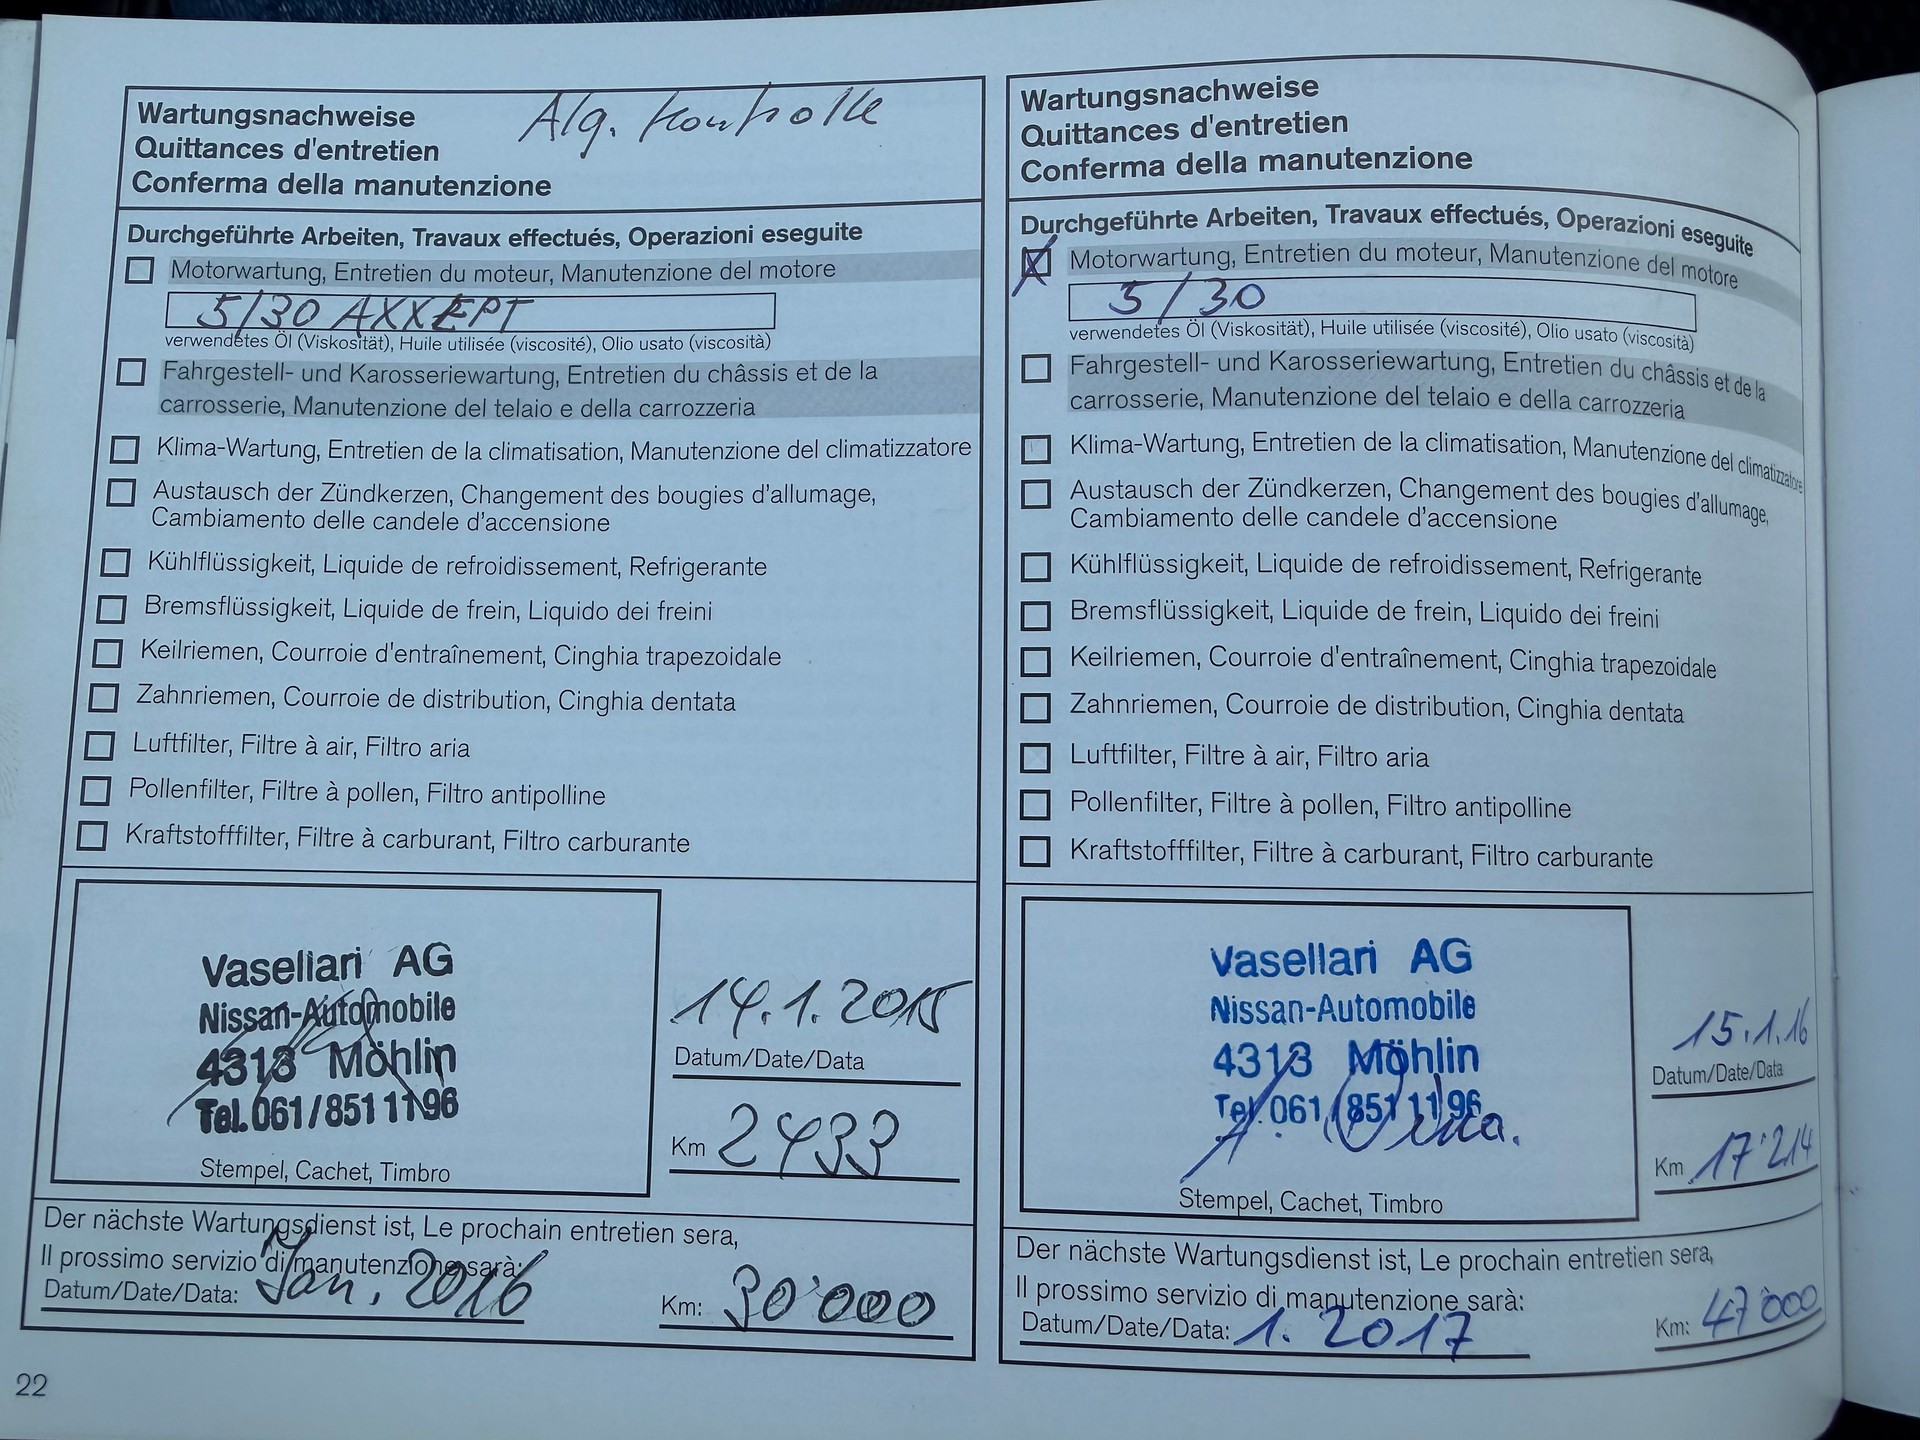 Wartungsnachweise
Alg. Kontrolle
Quittances d'entretien
Conferma della manutenzione
Durchgeführte Arbeiten, Travaux effectués, Operazioni eseguite
Motorwartung, Entretien du moteur, Manutenzione del motore
5/30 AXXEPT
verwendetes Öl (Viskosität), Huile utilisée (viscosité), Olio usato (viscosità)
Fahrgestell- und Karosseriewartung, Entretien du châssis et de la
carrosserie, Manutenzione del telaio e della carrozzeria
Klima-Wartung, Entretien de la climatisation, Manutenzione del climatizzatore
Austausch der Zündkerzen, Changement des bougies d'allumage,
Cambiamento delle candele d'accensione
Kühlflüssigkeit, Liquide de refroidissement, Refrigerante
Bremsflüssigkeit, Liquide de frein, Liquido dei freini
Keilriemen, Courroie d'entraînement, Cinghia trapezoidale
Zahnriemen, Courroie de distribution, Cinghia dentata
Luftfilter, Filtre à air, Filtro aria
Pollenfilter, Filtre à pollen, Filtro antipolline
Kraftstofffilter, Filtre à carburant, Filtro carburante
Vasellari AG
Nissan-Automobile
4313 Möhlin
Tel. 061/851 11 96
Stempel, Cachet, Timbro
14.1.2015
Datum/Date/Data
Km 2433
Der nächste Wartungsdienst ist, Le prochain entretien sera,
Il prossimo servizio di manutenzione sarà:
Datum/Date/Data: Jan. 2016
Km: 30'000
22
Wartungsnachweise
Quittances d'entretien
Conferma della manutenzione
Durchgeführte Arbeiten, Travaux effectués, Operazioni eseguite
X Motorwartung, Entretien du moteur, Manutenzione del motore
5/30
verwendetes Öl (Viskosität), Huile utilisée (viscosité), Olio usato (viscosità)
Fahrgestell- und Karosseriewartung, Entretien du châssis et de la
carrosserie, Manutenzione del telaio e della carrozzeria
Klima-Wartung, Entretien de la climatisation, Manutenzione del climatizzatore
Austausch der Zündkerzen, Changement des bougies d'allumage,
Cambiamento delle candele d'accensione
Kühlflüssigkeit, Liquide de refroidissement, Refrigerante
Bremsflüssigkeit, Liquide de frein, Liquido dei freini
Keilriemen, Courroie d'entraînement, Cinghia trapezoidale
Zahnriemen, Courroie de distribution, Cinghia dentata
Luftfilter, Filtre à air, Filtro aria
Pollenfilter, Filtre à pollen, Filtro antipolline
Kraftstofffilter, Filtre à carburant, Filtro carburante
Vasellari AG
Nissan-Automobile
4313 Möhlin
Tel. 061/851 11 96
Stempel, Cachet, Timbro
15.1.16
Datum/Date/Data
Km 17'214
Der nächste Wartungsdienst ist, Le prochain entretien sera,
Il prossimo servizio di manutenzione sarà:
Datum/Date/Data: 1. 2017
Km: 47'000